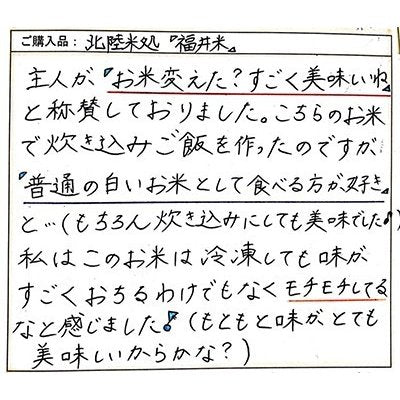 ご購入品: 北陸米処『福井米』
主人が、『お米変えた?すごく美味しいね』
と称賛しておりました。こちらのお米
で炊き込みご飯を作ったのですが、
『普通の白いお米として食べる方が好き』
と…(もちろん炊き込みにしても美味でした♪)
私はこのお米は冷凍しても味が
すごくおちるわけでもなくモチモチしてる
なと感じました♪(もともと味がとても
美味しいからかな?)